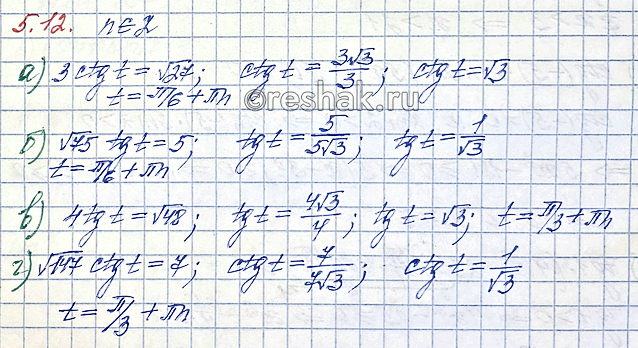 5.12. n∈Z
а) 3 ctg t = √27; ctg t = 3√3/3; ctg t = √3
t = π/6 + πn
©reshak.ru
б) √75 tg t = 5; tg t = 5/5√3; tg t = 1/√3
t = π/6 + πn
в) 4 tg t = √48; tg t = 4√3/4; tg t = √3; t = π/3 + πn
г) √147 ctg t = 7; ctg t = 7/7√3; ctg t = 1/√3
t = π/3 + πn